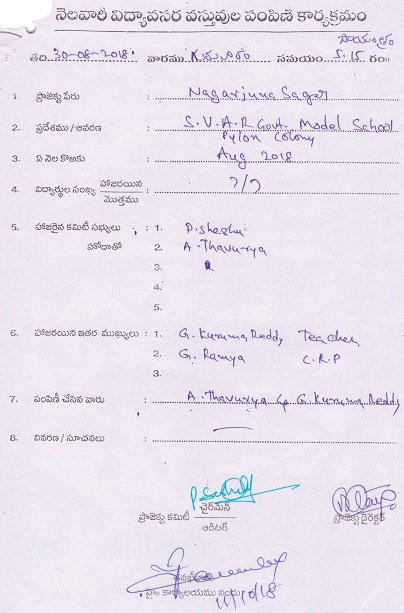 నెలవారీ విద్యావసర వస్తువుల పంపిణీ కార్యక్రమం
సాయంత్రం
తేది. 30-08-2018 వారము గురువారం సమయం 5.15 గం॥
1. ప్రాజెక్టు పేరు : Nagarjuna Sagar
2. ప్రదేశము / ఆవరణ : S.V.A.R Govt. Model School
Pylon Colony
3. ఏ నెల కొఱకు : Aug 2018
4. విద్యార్థుల సంఖ్య హాజరయిన : 7/7
మొత్తము
5. హాజరైన కమిటీ సభ్యులు : 1. P. Sheshu
హోదాతో 2. A. Thavurya
3.
4.
5.
6. హాజరయిన ఇతర ముఖ్యులు : 1. G. Kuruma Reddy Teacher
2. G. Ramya C.R.P
3.
7. పంపిణీ చేసిన వారు : A. Thavurya G. Kuruma Reddy
8. వివరణ / సూచనలు :
ప్రాజెక్టు కమిటీ చైర్మెన్ ప్రాజెక్టు డైరెక్టర్
ఆడిటర్
11/10/18